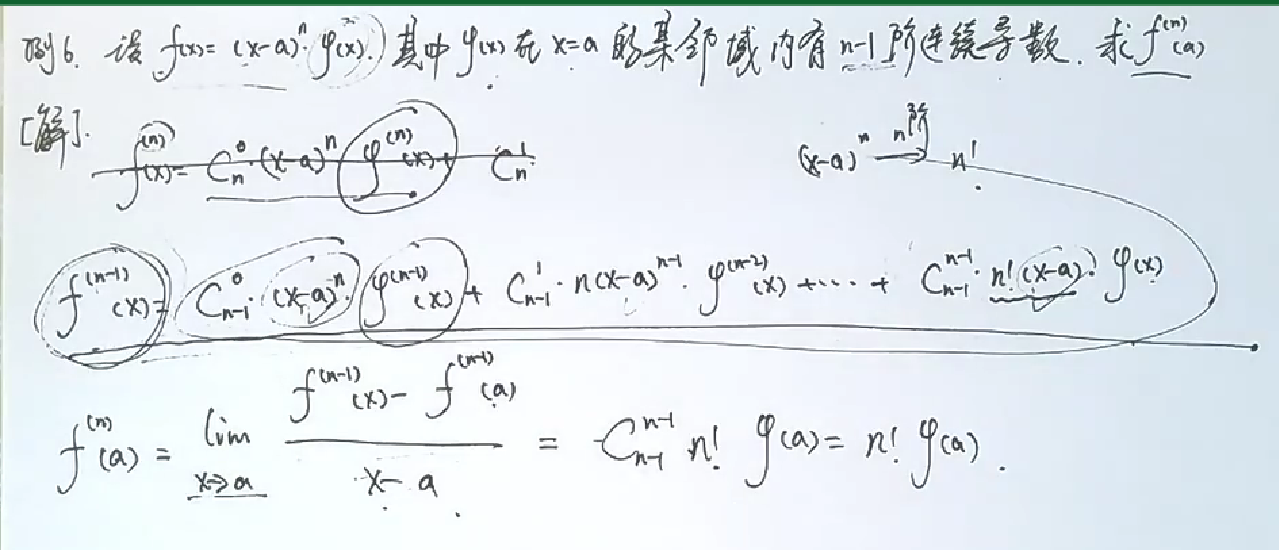 例6. 设 f(x)=(x-a)ⁿ·φ(x). 其中 φ(x) 在 x=a 的某邻域内有 n-1 阶连续导数. 求 f⁽ⁿ⁾(a)
[解].
f⁽ⁿ⁾(x)= Cₙ⁰·(x-a)ⁿ φ⁽ⁿ⁾(x)+ Cₙ¹ (x-a)ⁿ n阶→ n!
f⁽ⁿ⁻¹⁾(x)= Cₙ₋₁⁰·(x-a)ⁿ·φ⁽ⁿ⁻¹⁾(x)+ Cₙ₋₁¹·n(x-a)ⁿ⁻¹·φ⁽ⁿ⁻²⁾(x)+···+ Cₙ₋₁ⁿ⁻¹·n!(x-a)·φ(x)
f⁽ⁿ⁾(a)= lim x→a (f⁽ⁿ⁻¹⁾(x)- f⁽ⁿ⁻¹⁾(a))/(x-a) = Cₙ₋₁ⁿ⁻¹ n! φ(a)= n! φ(a).